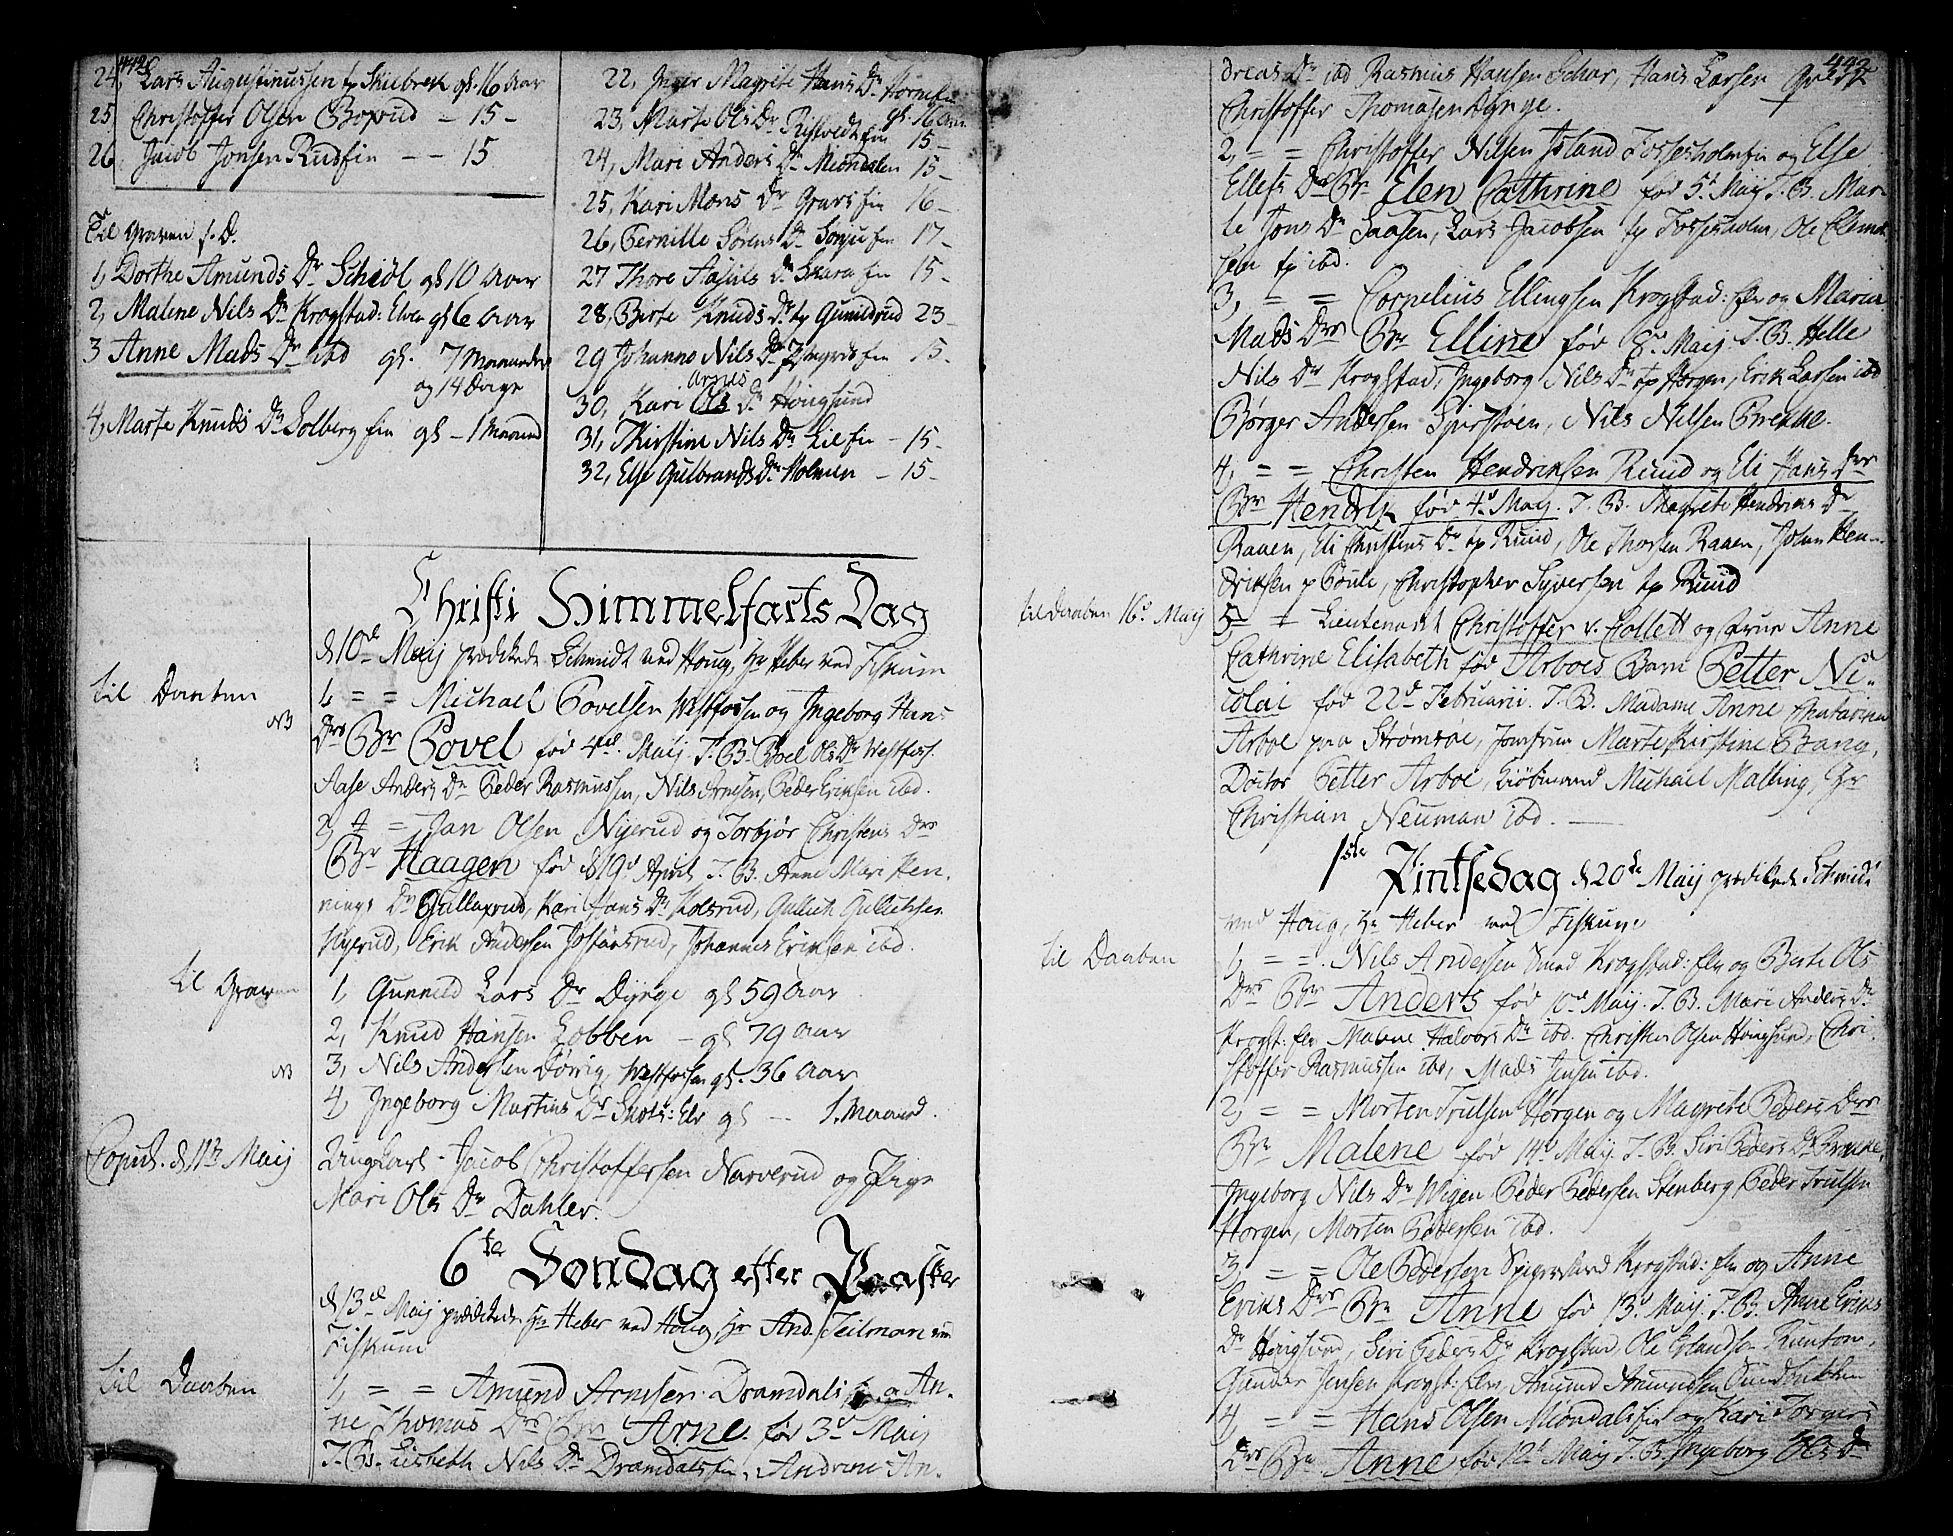 442
24, Lars Augustinussen fra Skiebrek gl. 16 Aar
25 Christoffer Olsen Boprud — 15 —
26 Jacob Jonsen Rudfin — — 15
Til Graven s. D.
1, Dorthe Amunds Dr Schiøl gl 10 Aar
2, Malene Nils Dr Krogstad: Elven gl 6 Aar
3 Anne Mads Dr ibd gl. 7 Maaneder
og 14 Dage
4, Marte Knuds Dr Solberg fin gl — 1 Maaned
22, Inger Magrete Hans Dr Horne
gl. 16 Aar
23, Marte Ols Dr fin 15 —
24, Mari Anders Dr Miøndalen 15 —
25, Kari Mons Dr Gravs fin 16 —
26, Pernille Sørens Dr fin 17 —
27 Thore Dr Skara fin 15 —
28, Birte Knuds Dr Gunildrud 23 —
29 Johanne Nils Dr fin 15 —
Arnes
30, Kari Ols Dr Hougsund
31, Kirstine Nils Dr Lie fin — 15 —
32, Else Gulbrands Dr Holmen — 15 —
Christi Himmelfarts Dag
d 10de Maij prædikede Schmidt ved Houg, Hr Heber ved Fiskum
til Daaben
1, = = Michael Povelsen Westfossen og Ingeborg Hans
NB
Drs Br Povel fød 4de Maij T. B. Ols Dr Westfoss.
Aase Anders Dr Peder Rasmussen, Nils Arnesen, Peder Eriksen ibd.
2, = = Jan Olsen Nyerud og Torbjør Christens Drs
Br Haagen fød d 19d April T. B. Anne Mari Hen-
nings Dr Gullaprud, Kari Hans Dr Kolsrud, Gullich Gullichsen
Nyerud, Erik Andersen, Johannes Eriksen ibd.
til Graven
1, Gunnild Lars Dr Dynge gl 59 Aar
2, Knud Hansen Lobben — gl 79 Aar
NB
3, Nils Andersen Døvig, Westfossen gl. 36 Aar
4, Ingeborg Martins Dr Skots: Elv gl — 1. Maaned.
Copul. d 11te Maij
Ungkarl Jacob Christoffersen Narverud og Pige
Mari Ols Dr Dahler.
6te Søndag efter Paaske
d 13de Maij prædikede Hr Heber ved Houg, Hr And. Teilman ved
Fiskum
til Daaben
1, = = Amund Arnesen Dramdals og An-
ne Thomas Drs Br Arne fød 3d Maij
T. B. Lisbeth Nils Dr Dramdalsfin, Andrine An-
442
dreas Dr ibd Rasmus Hansen Schar, Hans Larsen
Christoffer Thomasen Dynge.
2, = = Christoffer Nilsen Island Fossesholmfin og Else
Ellefs Drs Br Elen Cathrine fød 5d Maij T. B. Mar-
te Jons Dr Saasen, Lars Jacobsen fra Fossesholm, Ole Clemet-
sen fra ibd.
3, = = Cornelius Ellingsen Krogstad: Elv og Maria
Mads Drs Br Elline fød 8d Maij T. B. Helle
Nils Dr Krogstad, Ingeborg Nils Dr fra Horgen, Erik Larsen ibd
Børger Andersen, Nils Nilsen Brekke.
4, = = Christen Hendriksen Ruud og Eli Hans Drs
Br Hendrik fød 4d Maij. T. B. Magrete Hendriks Dr
Raaen, Eli Christens Dr fra Ruud, Ole Thorsen Raaen, Johan Hen-
driksen, Christopher Syversen fra Ruud
til Daaben 16d Maij
5, = Lieutenant Christoffer v. Collett og Frue Anne
Cathrine Elisabeth fød Arboes Barn Petter Ni-
colai fød 22d Februarii. T. B. Madame Anne Chatarina
Arboe paa Strømsøe, Jomfrue Marte Kirstine Bang,
Doctor Petter Arboe, Kiøbmand Michael Malling, Hr
Christian Neuman ibd. —
1ste Pintsedag d 20de Maij prædikede Schmidt
ved Houg, Hr Heber ved Fiskum
til Daaben
1, = =. Nils Andersen Smed Krogstad: Elv og Berte Ols
Drs Br Anders fød 10d Maij. T. B. Mari Anders Dr
Krogst: Elv, Malene Halvors Dr ibd. Christen Olsen Hougsund, Chri-
stoffer Rasmussen ibd, Mads Jensen ibd.
2, = = Morten Trulsen Horgen og Magrete Peders Drs
Br Malene fød 14d Maij. T. B. Siri Peders Dr Brekke,
Ingeborg Nils Dr Wigen Peder Pedersen Stenberg, Peder Trulsen
Horgen, Morten Pedersen ibd.
3, = = Ole Pedersen Krogstad: Elv og Anne
Eriks Drs Br Anne fød 13d Maij. T. B. Anne Eriks
Dr Hougsund, Siri Peders Dr Krogstad, Ole Erlandsen
Gunder Jensen Krogst: Elv, Amund Amundsen
4, = = Hans Olsen Miøndalsfin og Kari Torgers
Drs Br Anne fød 12d Maij T. B. Ingeborg Ols Dr